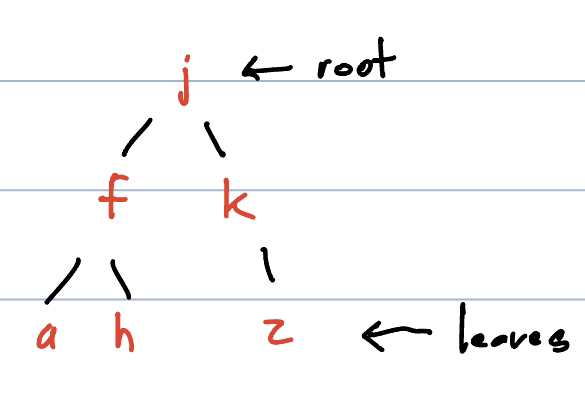 j ← root
f k
a h z ← leaves